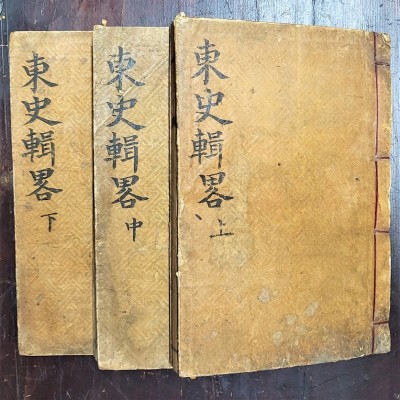 東史輯畧 上
東史輯畧 中
東史輯畧 下